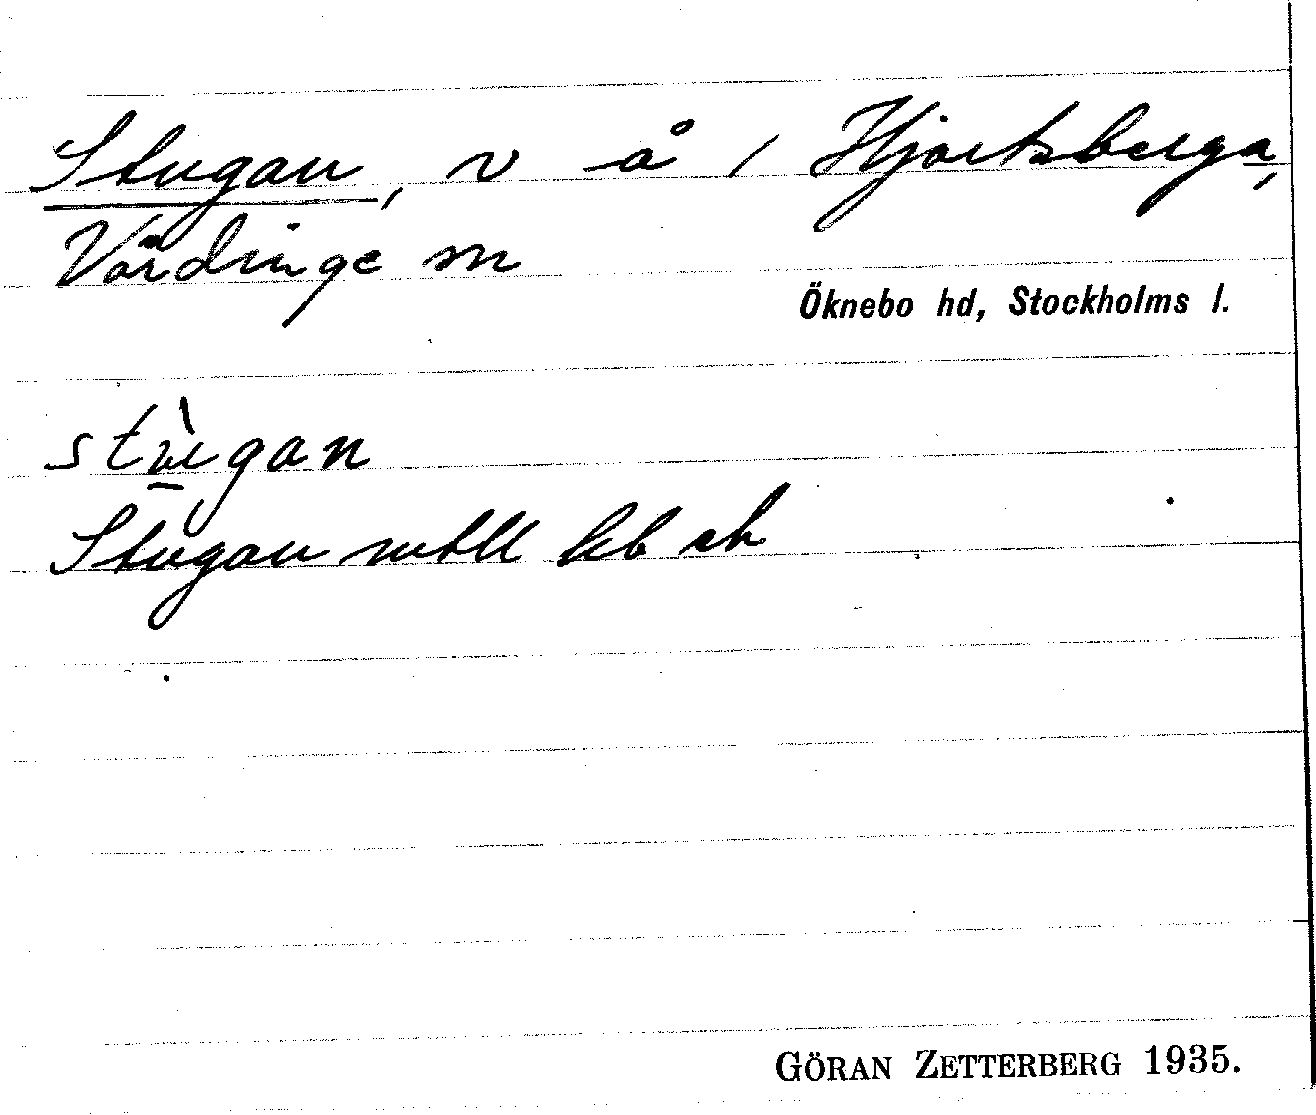 Stugan, v å 1 Hjortsberga,
Vårdinge sn
Öknebo hd, Stockholms l.
stù̠gan
Stugan mtll kb ek
GÖRAN ZETTERBERG 1935.